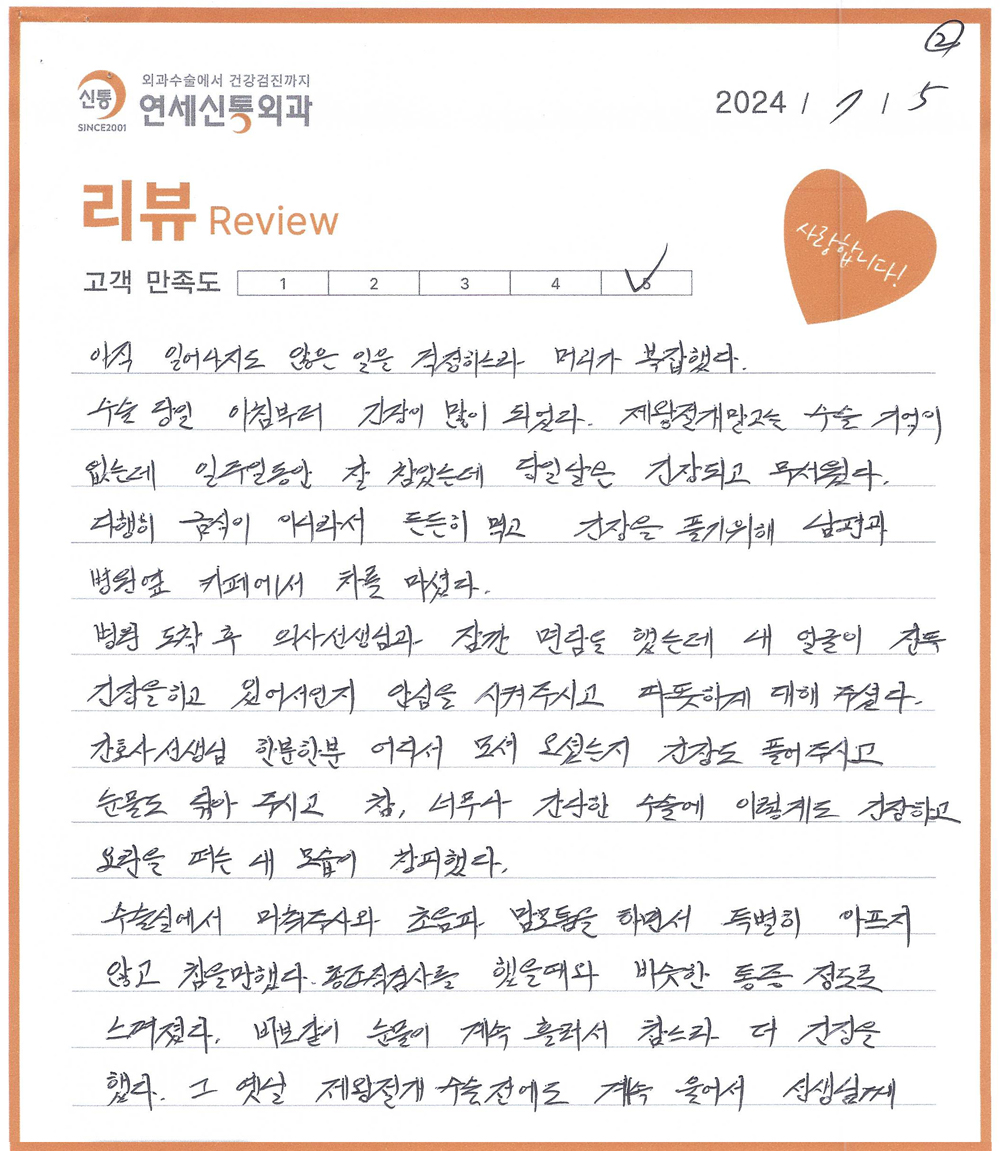 ②
신통
SINCE2001
외과수술에서 건강검진까지
연세신통외과
2024 / 7 / 5
리뷰 Review
사랑합니다!
고객 만족도 1 2 3 4 5
아직 일어나지도 않은 일을 걱정하느라 머리가 복잡했다.
수술 당일 아침부터 긴장이 많이 되었다. 제왕절개말고는 수술 기억이
없는데 일주일동안 잘 참았는데 당일날은 긴장되고 무서웠다.
다행히 금식이 아니라서 든든히 먹고 긴장을 풀기위해 남편과
병원옆 카페에서 차를 마셨다.
병원 도착 후 의사선생님과 잠깐 면담을 했는데 내 얼굴이 잔뜩
긴장을하고 있어서인지 안심을 시켜주시고 따뜻하게 대해 주셨다.
간호사선생님 한분한분 어디서 모셔 오셨는지 긴장도 풀어주시고
눈물도 닦아 주시고 참, 너무나 간단한 수술에 이렇게도 긴장하고
요란을 떠는 내 모습이 창피했다.
수술실에서 마취주사와 초음파 맘모톰을 하면서 특별히 아프지
않고 참을만했다. 총조직검사를 했을때와 비슷한 통증 정도로
느껴졌다. 바보같이 눈물이 계속 흘러서 참느라 더 긴장을
했다. 그 옛날 제왕절개 수술전에도 계속 울어서 선생님께